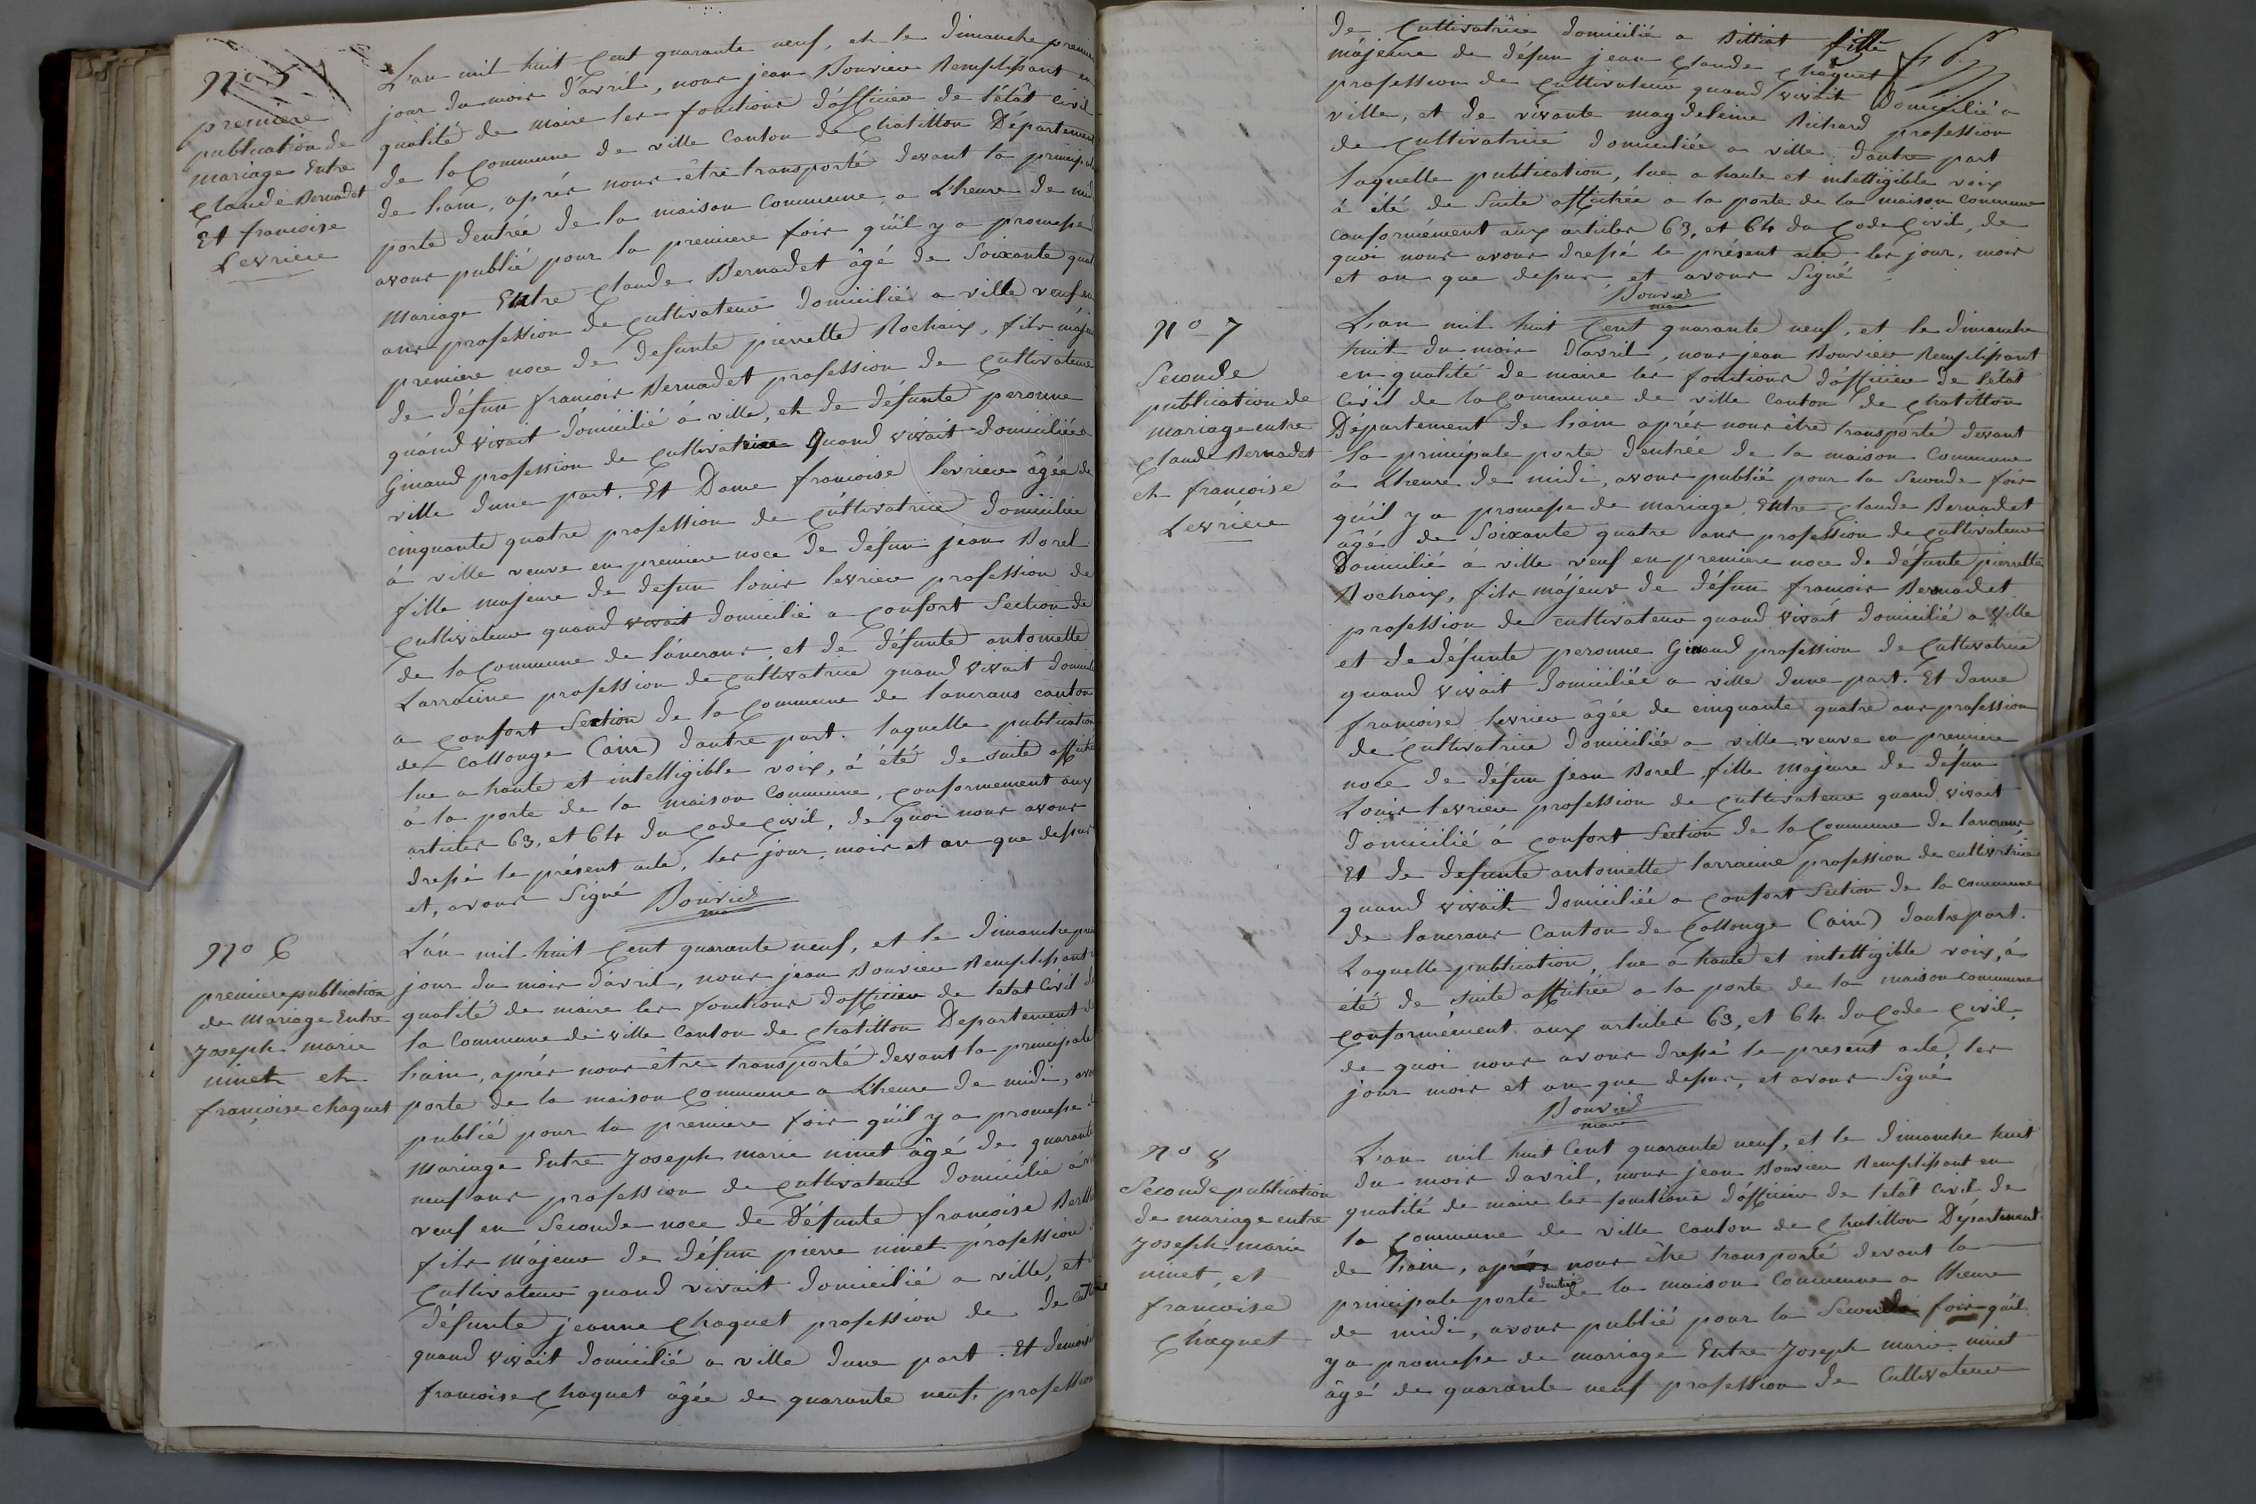 N° 5
premiere
publication de
mariage Entre
Claude Bernadet
Et francoise
Levrière
L'an mil huit Cent quarante neuf, et le dimanche premier
jour du mois d'avril, nous jean Bouvier Remplissant en
qualité de maire les fonctions d'officier de l'état civil
de la Commune de ville Canton de Chatillon Département
de L'ain, aprés nous être transporté devant la principale
porte dentrée de la maison Commune, a L'heure de midi
avons publié pour la premiere fois qu'il y a promesse
Mariage Entre Claude Bernadet âgé de Soixante quatre
ans profession de Cultivateur domicilié a ville veuf en
premiere noce de defunte pierrette Rochaix, fils májeur
de défun francois Bernadet profession de Cultivateur
quánd vivait domicilié á ville, et de défunte peronne
Ginand profession de Cultivatrice Quand vivait domiciliée
ville dune part. Et Dame francoise levrier âgée de
cinquante quatre profession de Cultivatrice domiciliée
á ville veuve en premiere noce de défun jean Borel
fille majeure de defun louis levrier profession de
Cultivateur quand vivait domicilié a Confort Section de
de la Commune de láncrans, et de défunte antoinette
Larracine profession de Cultivatrice quand vivait
a Confort Section de la Commune de lancrans canton
de Collonge (ain) dautre part. laquelle publication
lue a haute et intelligible voix, á été de suite affichée
á la porte de la maison Commune, conformement aux
articles 63, et 64 du Code Civil, de quoi nous avons
dressé le présent acte, les jour, mois et an que dessus
et, avons Signé
Bouvier
maire
N° 6
premiere publication
de Mariage Entre
Joseph marie
ninet et
françoise chaquet
L'án mil huit Cent quarante neuf, et le dimanche
jour du mois d'avril, nous jean Bouvier Remplissant
qualité de maire les fonctions dofficier de létat Civil de
la Commune de ville Canton de Chatillon Departement de
L'ain, aprés nous être transporté devant la principale
porte de la maison Commune a L'heure de midi,
publié pour la premiere fois qu'il y a promesse de
Mariage Entre Joseph marie ninet âgé de quarante
neuf ans profession de Cultivateur domicilié
veuf en Seconde noce de Défunte francoise
fils májeur de défun pierre ninet profession
Cultivateur quand vivait domicilié a ville, et
défunte jeanne Chaquet profession de de
quand vivait domicilié a ville dune part. Et
francoise Chaquet âgée de quarante neuf, profession
de Cultivatrice domicilié a Billiat fille
májeure de défun jean Claude Chaquet
profession de Cultivateur quand vivait domicilié a
ville, et de vivante magdeleine Richard profession
de Cultivatrice domiciliée a ville dautre part
laquelle publication, lue a haute et intelligible voix
á été de Suite affichée a la porte de la maison Commune
conformément aux articles 63, et 64 du Code Civil, de
quoi nous avons dressé le présent acte les jour, mois
et an que dessus, et avons Signé
Bouvier
maire
N° 7
Seconde
publication de
mariage entre
Claude Bernadet
et françoise
Levrière
L'an mil huit Cent quarante neuf, et le dimanche
huit du mois d'avril, nous jean Bouvier Remplissant
en qualité de maire les fonctions d'officier de l'état
Civil de la Commune de ville Canton de Chatillon
Département de L'ain aprés nous être transporté devant
la principale porte d'entrée de la maison Commune
á L'heure de midi, avons publié pour la Seconde fois
qu'il y a promesse de mariage, Entre Claude Bernadet
âgé de Soixante quatre ans profession de Cultivateur
Domicilié á ville veuf en premiere noce de défunte pierrette
Rochaix, fils májeur de défun francois Bernadet
profession de cultivateur quand vivait domicilié a ville
et de défunte peronne Ginand profession de Cultivatrice
quand vivait domiciliée a ville dune part. Et dame
françoise levrier âgée de cinquante quatre ans profession
de Cultivatrice domiciliée a ville veuve en premiere
noce de défun jean Borel, fille Majeure de défun
Louis levrier profession de Cultivateur quand vivait
domicilié á Confort Section de la Commune de lancrans,
Et de defunte antoinette larracine profession de cultivatrice
quand vivait domiciliée a Confort Section de la Commune
de lancrans Canton de Collonge (ain) dautre part.
Laquelle publication, lue a haute et intelligible voix, á
été de suite affichée a la porte de la maison commune
Conformément aux articles 63, et 64 du Code Civil,
de quoi nous avons dressé le present acte, les
jour mois et an que dessus, et avons Signé
Bouvier
maire
N° 8
Seconde publication
de mariage entre
Joseph marie
ninet, et
francoise
Chaquet
L'an mil huit Cent quarante neuf, et le dimanche huit
du mois d'avril, nous jean Bouvier Remplissant en
qualité de maire les fonctions d'officier de l'état Civil de
la Commune de ville Canton de Chatillon Département
de L'ain, aprés nous être transporté devant la
principale porte dentrée de la maison Commune a l'heure
de midi, avons publié pour la Seconde fois qu'il
y a promesse de mariage Entre Joseph marie ninet
âgé de quarante neuf profession de Cultivateur